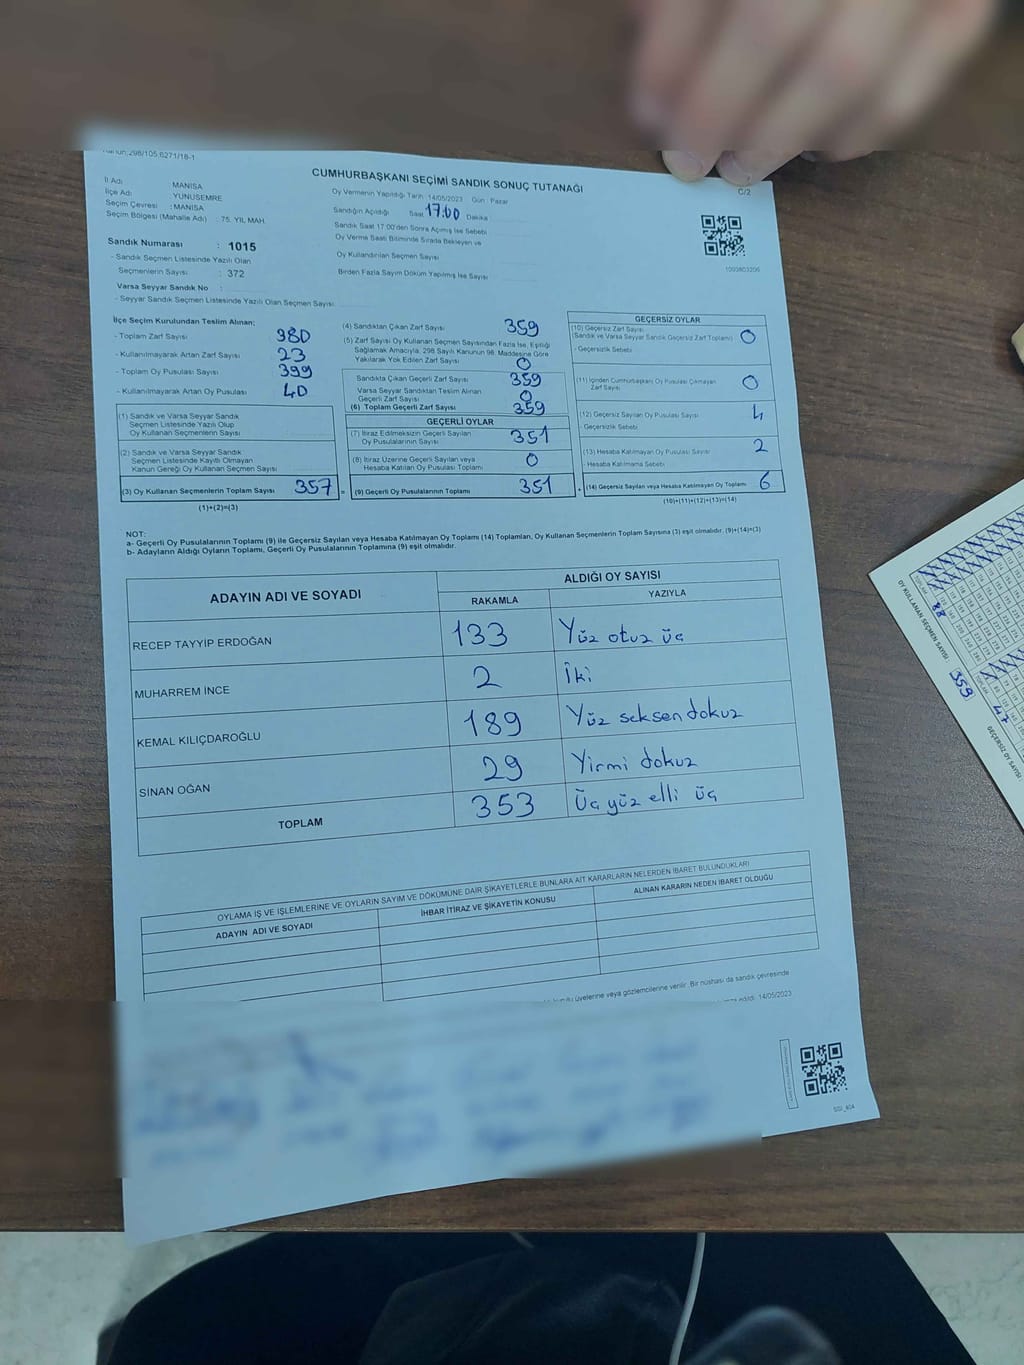 Kanun:298/105,6271/18-1
CUMHURBAŞKANI SEÇİMİ SANDIK SONUÇ TUTANAĞI
C/2
İl Adı : MANİSA
İlçe Adı : YUNUSEMRE
Seçim Çevresi : MANİSA
Seçim Bölgesi (Mahalle Adı) : 75. YIL MAH.
Oy Vermenin Yapıldığı Tarih: 14/05/2023 Gün : Pazar
Sandığın Açıldığı Saat 17:00 Dakika :
Sandık Saat 17:00'den Sonra Açılmış İse Sebebi
Oy Verme Saati Bitiminde Sırada Bekleyen ve
Oy Kullandırılan Seçmen Sayısı
Birden Fazla Sayım Döküm Yapılmış İse Sayısı
Sandık Numarası : 1015
- Sandık Seçmen Listesinde Yazılı Olan
Seçmenlerin Sayısı : 372
Varsa Seyyar Sandık No :
- Seyyar Sandık Seçmen Listesinde Yazılı Olan Seçmen Sayısı
İlçe Seçim Kurulundan Teslim Alınan:
- Toplam Zarf Sayısı 380
- Kullanılmayarak Artan Zarf Sayısı 23
- Toplam Oy Pusulası Sayısı 399
- Kullanılmayarak Artan Oy Pusulası 40
(1) Sandık ve Varsa Seyyar Sandık
Seçmen Listesinde Yazılı Olup
Oy Kullanan Seçmenlerin Sayısı
(2) Sandık ve Varsa Seyyar Sandık
Seçmen Listesinde Kayıtlı Olmayan
Kanun Gereği Oy Kullanan Seçmen Sayısı
(3) Oy Kullanan Seçmenlerin Toplam Sayısı 357 =
(1)+(2)=(3)
(4) Sandıktan Çıkan Zarf Sayısı 359
(5) Zarf Sayısı Oy Kullanan Seçmen Sayısından Fazla İse, Eşitliği
Sağlamak Amacıyla, 298 Sayılı Kanunun 98. Maddesine Göre
Yakılarak Yok Edilen Zarf Sayısı 0
Sandıkta Çıkan Geçerli Zarf Sayısı 359
Varsa Seyyar Sandıktan Teslim Alınan
Geçerli Zarf Sayısı 0
(6) Toplam Geçerli Zarf Sayısı 359
GEÇERLİ OYLAR
(7) İtiraz Edilmeksizin Geçerli Sayılan
Oy Pusulalarının Sayısı 351
(8) İtiraz Üzerine Geçerli Sayılan veya
Hesaba Katılan Oy Pusulası Toplamı 0
(9) Geçerli Oy Pusulalarının Toplamı 351 +
GEÇERSİZ OYLAR
(10) Geçersiz Zarf Sayısı
(Sandık ve Varsa Seyyar Sandık Geçersiz Zarf Toplamı) 0
- Geçersizlik Sebebi
(11) İçinden Cumhurbaşkanı Oy Pusulası Çıkmayan
Zarf Sayısı 0
(12) Geçersiz Sayılan Oy Pusulası Sayısı 4
- Geçersizlik Sebebi
(13) Hesaba Katılmayan Oy Pusulası Sayısı 2
- Hesaba Katılmama Sebebi
(14) Geçersiz Sayılan veya Hesaba Katılmayan Oy Toplamı 6
(10)+(11)+(12)+(13)=(14)
NOT:
a- Geçerli Oy Pusulalarının Toplamı (9) ile Geçersiz Sayılan veya Hesaba Katılmayan Oy Toplamı (14) Toplamları, Oy Kullanan Seçmenlerin Toplam Sayısına (3) eşit olmalıdır. (9)+(14)=(3)
b- Adayların Aldığı Oyların Toplamı, Geçerli Oy Pusulalarının Toplamına (9) eşit olmalıdır.
ADAYIN ADI VE SOYADI
ALDIĞI OY SAYISI
RAKAMLA YAZIYLA
RECEP TAYYİP ERDOĞAN 133 Yüz otuz üç
MUHARREM İNCE 2 İki
KEMAL KILIÇDAROĞLU 189 Yüz seksen dokuz
SİNAN OĞAN 29 Yirmi dokuz
TOPLAM 353 Üç yüz elli üç
OYLAMA İŞ VE İŞLEMLERİNE VE OYLARIN SAYIM VE DÖKÜMÜNE DAİR ŞİKAYETLERLE BUNLARA AİT KARARLARIN NELERDEN İBARET BULUNDUKLARI
ADAYIN ADI VE SOYADI
İHBAR İTİRAZ VE ŞİKAYETİN KONUSU
ALINAN KARARIN NEDEN İBARET OLDUĞU
üyelerine veya gözlemcilerine verilir. Bir nüshası da sandık çevresinde
14/05/2023
OY KULLANAN SEÇMEN SAYISI : 359
GEÇERSİZ OY SAYISI :